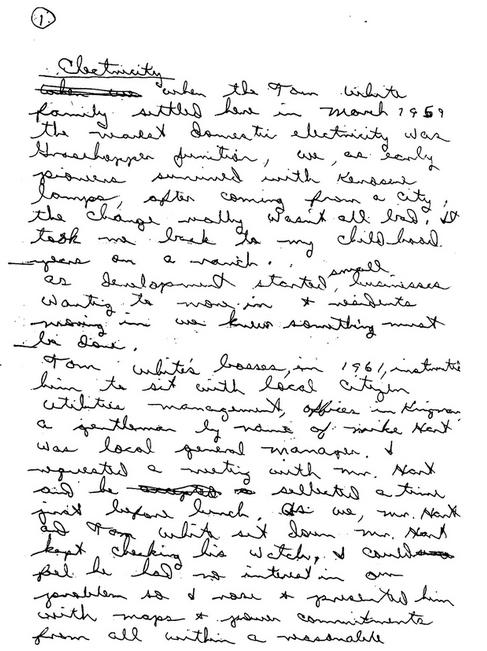 1
Electricity
when the Tom White
family settled here in March 1959
the nearest domestic electricity was
Grasshopper Junction, we, as early
pioneers survived with Kerosene
lamps, after coming from a city,
the change really wasn't all bad. It
took me back to my childhood
years on a ranch.
as development started, small businesses
wanting to move in & residents
moving in we knew something must
be done.
Tom White's bosses, in 1961, instructed
him to sit with local Citizen
Utilities management, offices in Kingman
a gentleman by name of Mike Hart
was local general manager. I
requested a meeting with Mr. Hart
and he sellected a time
just before lunch. As we, Mr. Hart
and Tom White sit down Mr. Hart
kept checking his watch, I could
feel he had no interest in our
problem so I rose & presented him
with maps & power commitments
from all within a reasonable